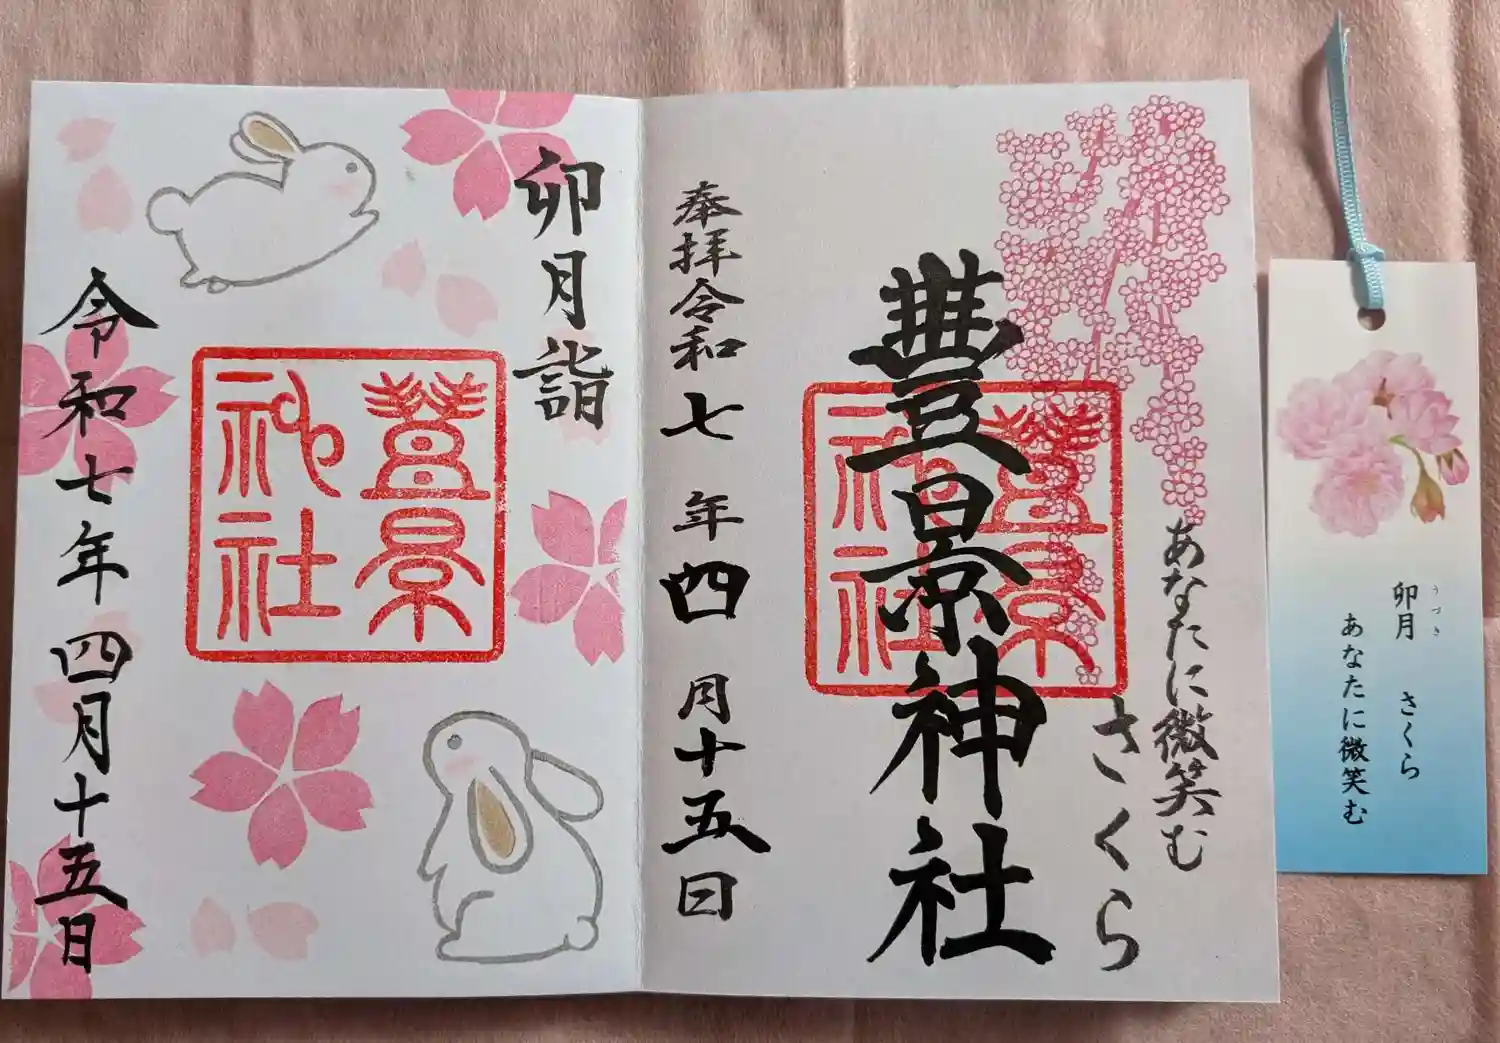 あなたに微笑む
さくら
豊景神社
豊景神社
奉拝令和七年四月十五日
卯月詣
豊景神社
令和七年四月十五日
うづき
卯月 さくら
あなたに微笑む